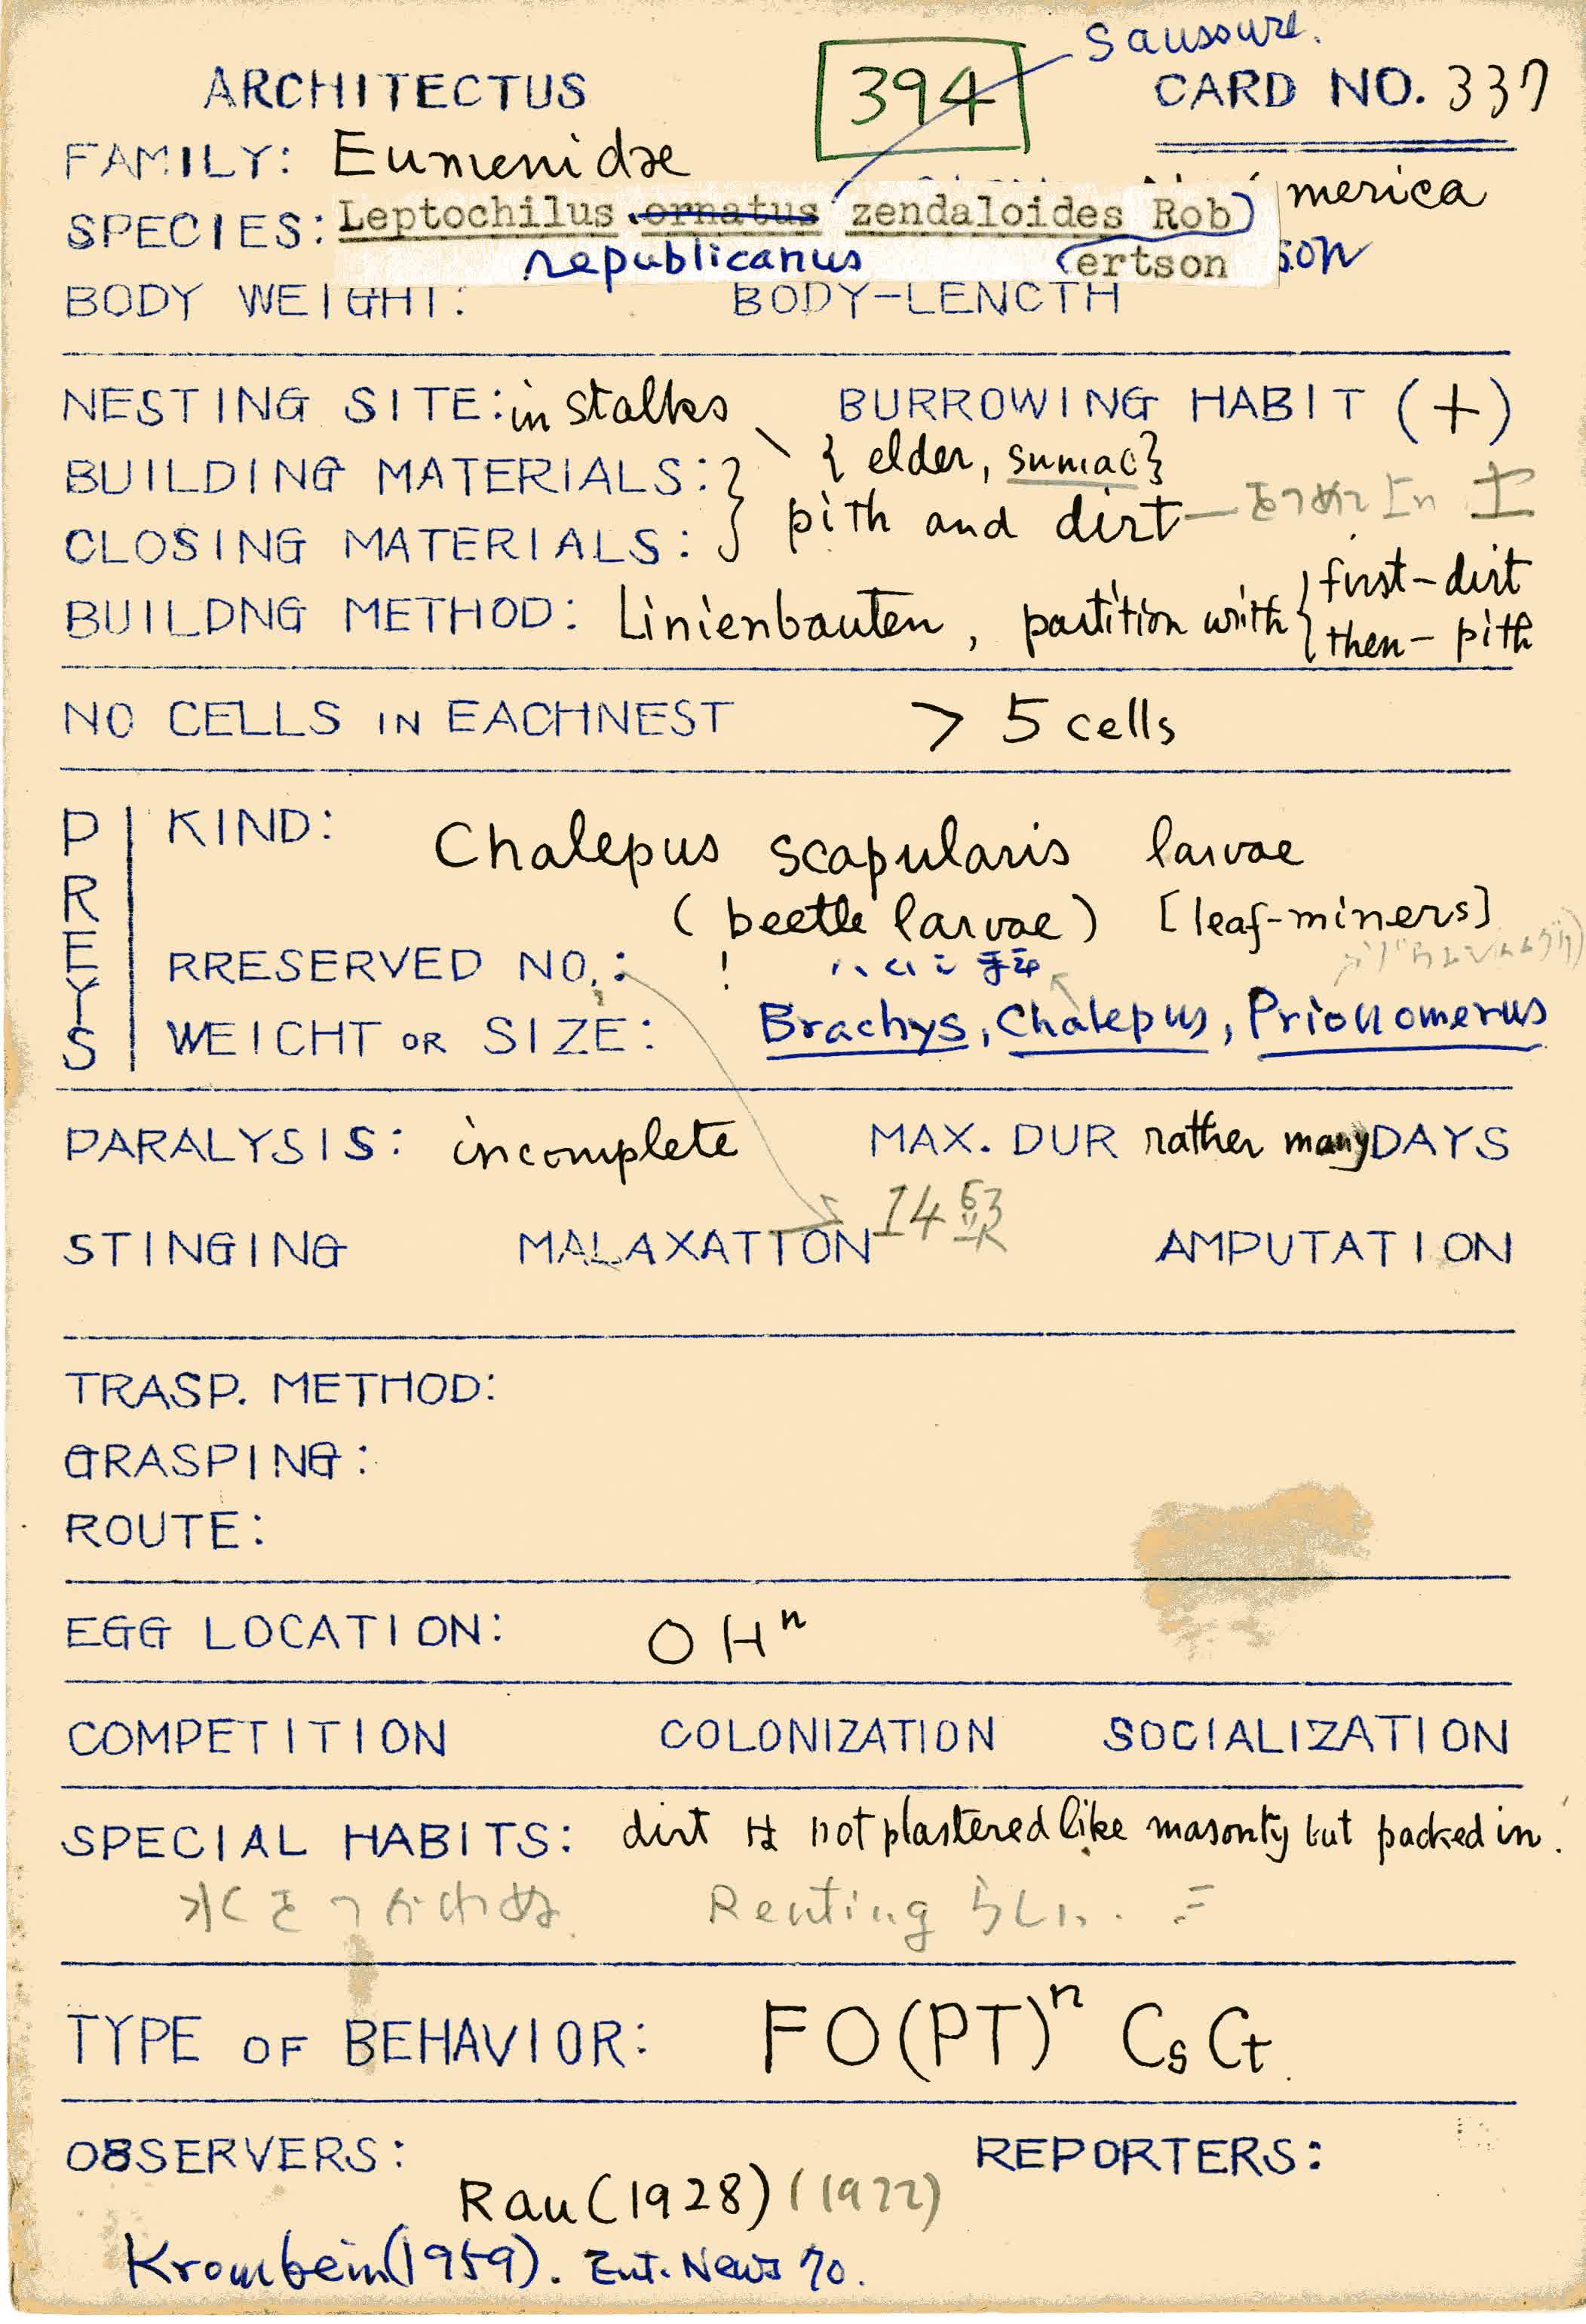 Saussure.
ARCHITECTUS 394 CARD NO. 337
FAMILY: Eumenidae
merica
SPECIES: Leptochilus ornatus zendaloides Rob
republicanus ertson son
BODY WEIGHT: BODY-LENCTH
NESTING SITE: in stalks BURROWING HABIT (+)
{elder, sumac}
BUILDING MATERIALS:
pith and dirt — 土
CLOSING MATERIALS:
BUILDNG METHOD: Linienbauten, partition with { first-dirt
then- pith
NO CELLS IN EACHNEST > 5 cells
PREYS
KIND: Chalepus scapularis larvae
(beetle larvae) [leaf-miners]
RRESERVED NO.: !
WEICHT OR SIZE: Brachys, Chalepus, Prionomerus
PARALYSIS: incomplete MAX. DUR rather many DAYS
14頭
STINGING MALAXATTON AMPUTATION
TRASP. METHOD:
GRASPING:
ROUTE:
EGG LOCATION: OHⁿ
COMPETITION COLONIZATION SOCIALIZATION
SPECIAL HABITS: dirt は not plastered like masonty but packed in.
水をつかわぬ Renting らしい.
TYPE OF BEHAVIOR: FO(PT)ⁿ Cs Ct
OBSERVERS: REPORTERS:
Rau (1928) (1922)
Krombein (1959). Ent. News 70.